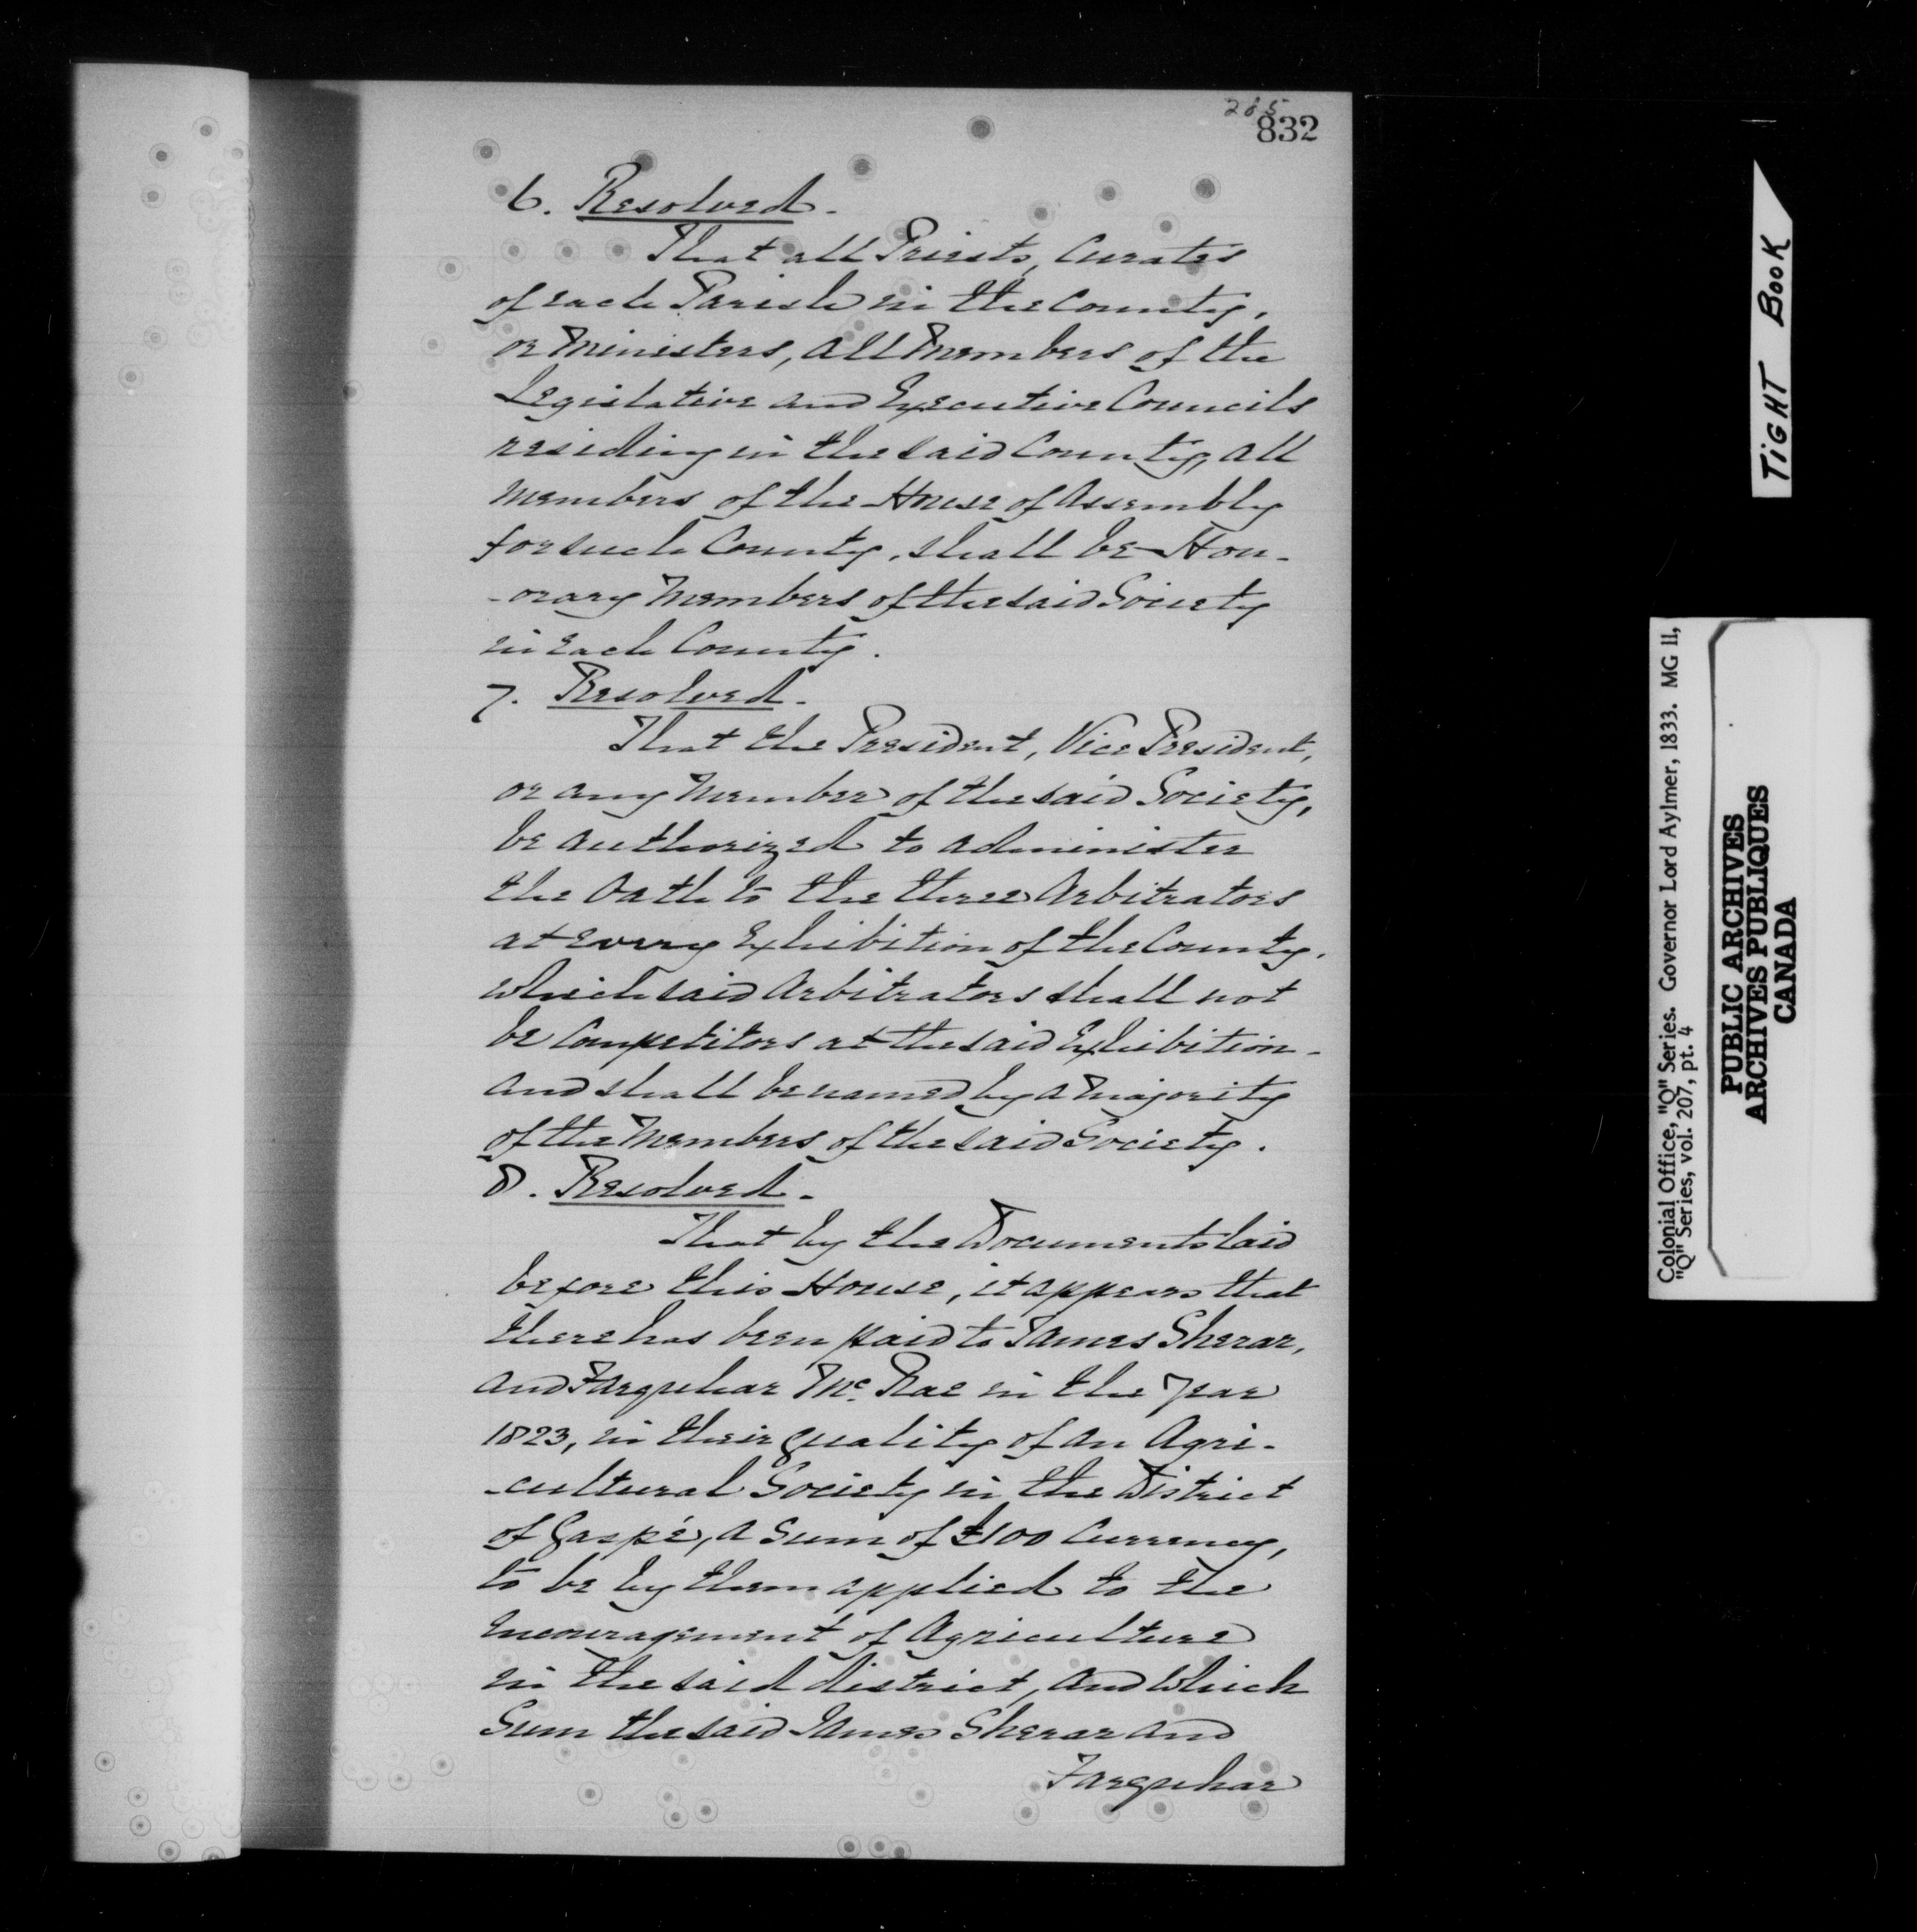 285
832
6. Resolved.
That all Priests, Curates
of each Parish in the County,
or Ministers, all Members of the
Legislative and Executive Councils
residing in the said County, all
Members of the House of Assembly
for such County, shall be Hon-
-orary Members of the said Society
in each County.
7. Resolved.
That the President, Vice President,
or any Member of the said Society,
be authorized to administer
the Oath to the three Arbitrators
at every Exhibition of the County,
which said Arbitrators shall not
be Competitors at the said Exhibition -
and shall be named by a Majority
of the Members of the said Society.
8. Resolved.
That by the Documents laid
before this House, it appears that
there has been paid to James Sherar,
and Farquhar Mc. Rae in the year
1823, in their quality of an Agri-
-cultural Society in the District
of Gaspé, a Sum of £100 Currency,
to be by them applied to the
encouragement of Agriculture
in the said district, and which
Sum the said James Sherar and
Farquhar
TIGHT BOOK
Colonial Office, "Q" Series. Governor Lord Aylmer, 1833. MG 11,
"Q" Series, vol. 207, pt. 4
PUBLIC ARCHIVES
ARCHIVES PUBLIQUES
CANADA